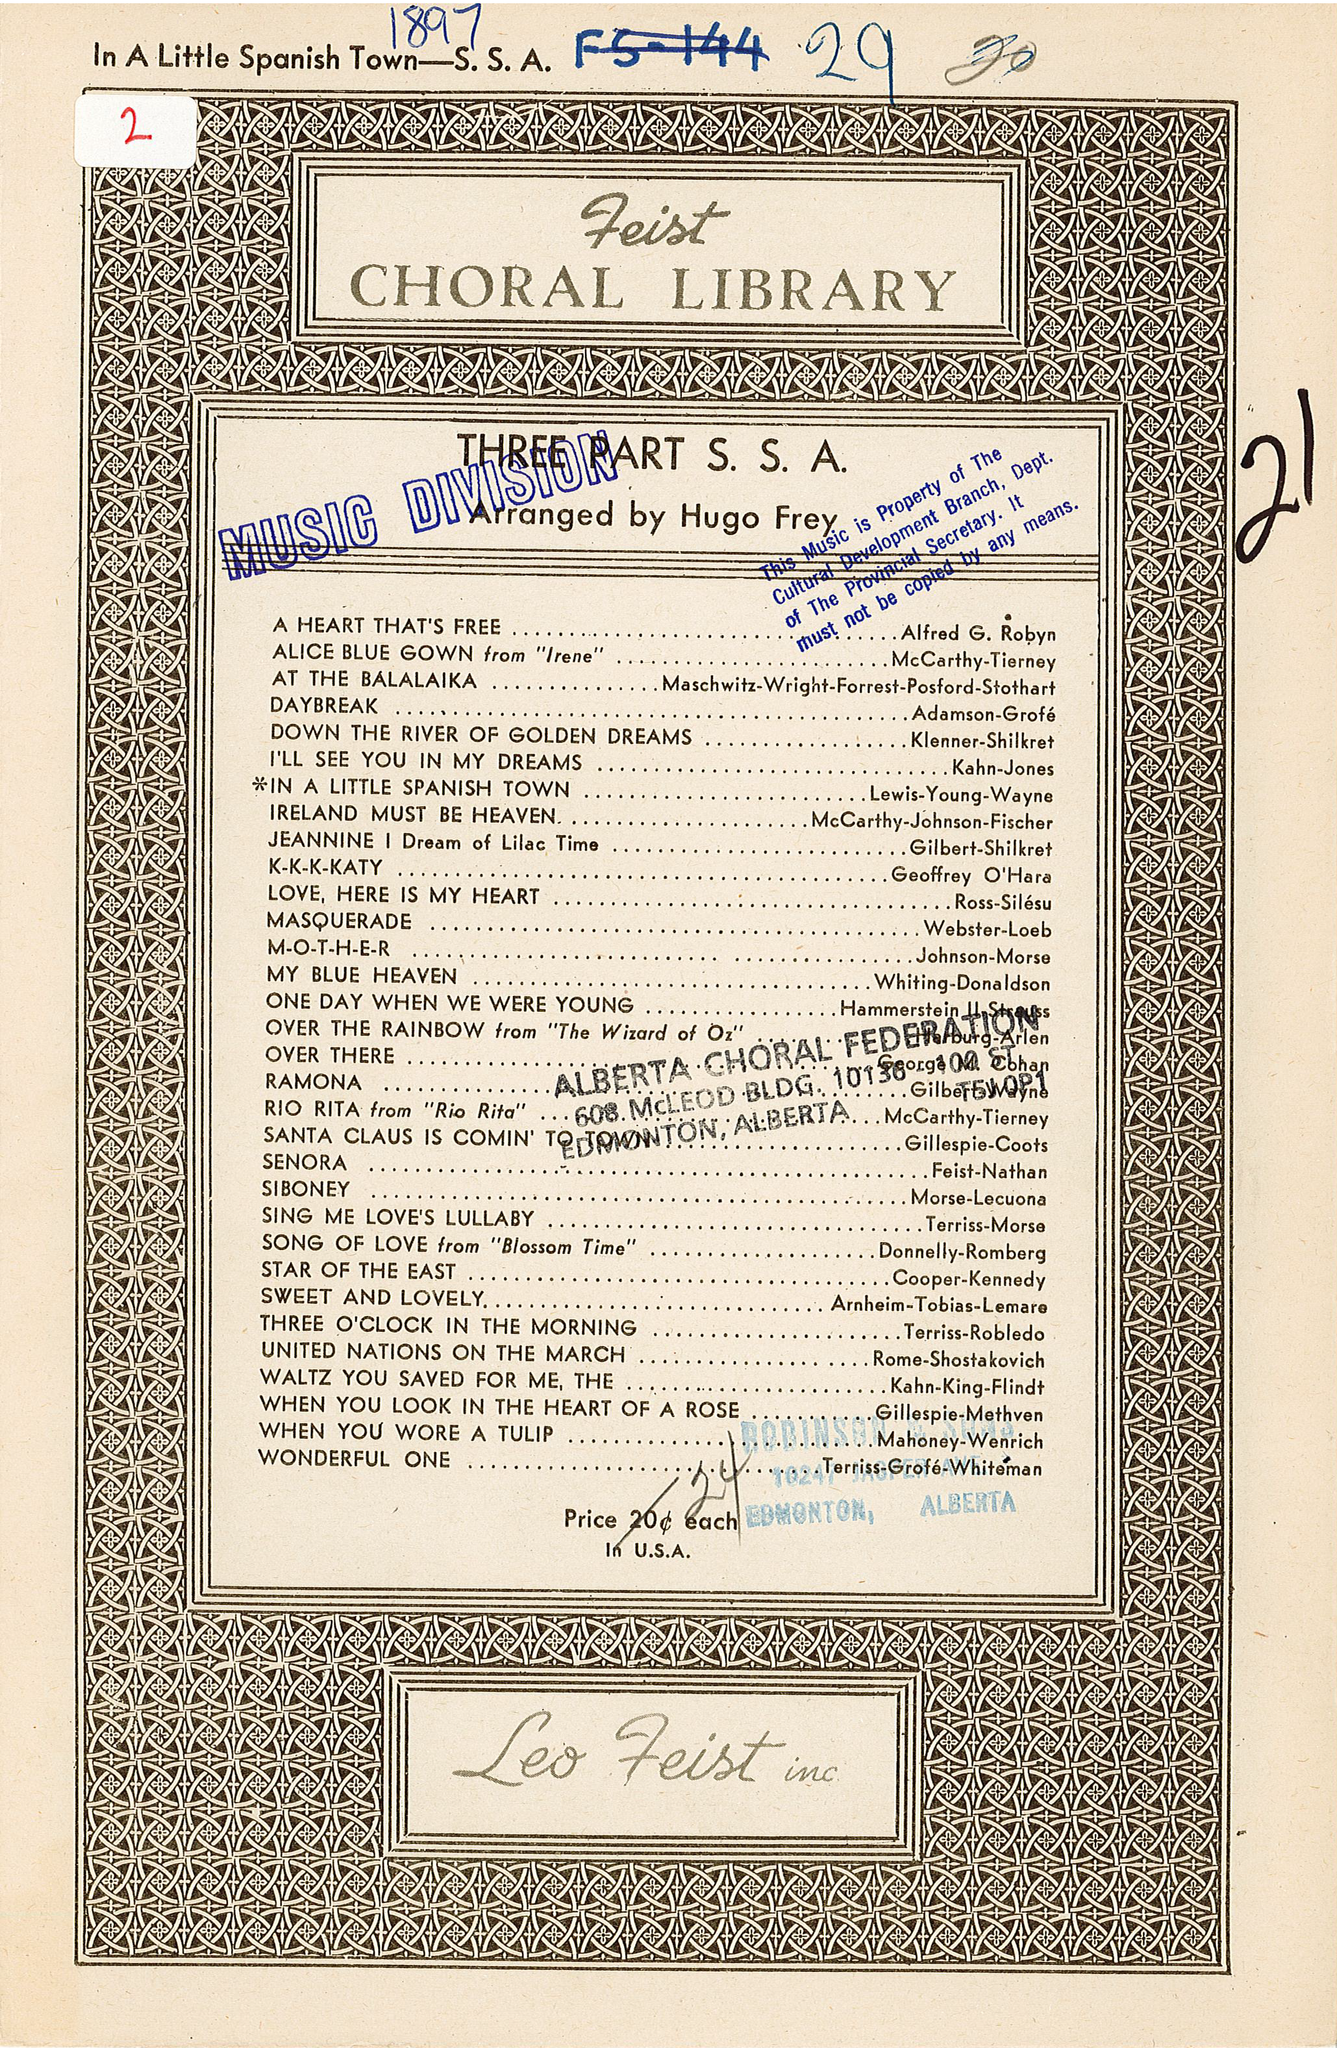 1897
In A Little Spanish Town—S. S. A. F5-144 29 20
2
Feist
CHORAL LIBRARY
21
THREE PART S. S. A.
MUSIC DIVISION
Arranged by Hugo Frey
This Music is Property of The
Cultural Development Branch, Dept.
of The Provincial Secretary. It
must not be copied by any means.
A HEART THAT'S FREE ........ Alfred G. Robyn
ALICE BLUE GOWN from "Irene" ........ McCarthy-Tierney
AT THE BALALAIKA ........ Maschwitz-Wright-Forrest-Posford-Stothart
DAYBREAK ........ Adamson-Grofé
DOWN THE RIVER OF GOLDEN DREAMS ........ Klenner-Shilkret
I'LL SEE YOU IN MY DREAMS ........ Kahn-Jones
*IN A LITTLE SPANISH TOWN ........ Lewis-Young-Wayne
IRELAND MUST BE HEAVEN ........ McCarthy-Johnson-Fischer
JEANNINE I Dream of Lilac Time ........ Gilbert-Shilkret
K-K-K-KATY ........ Geoffrey O'Hara
LOVE, HERE IS MY HEART ........ Ross-Silésu
MASQUERADE ........ Webster-Loeb
M-O-T-H-E-R ........ Johnson-Morse
MY BLUE HEAVEN ........ Whiting-Donaldson
ONE DAY WHEN WE WERE YOUNG ........ Hammerstein II-Strauss
OVER THE RAINBOW from "The Wizard of Oz" ........ Harburg-Arlen
OVER THERE ........ George M. Cohan
RAMONA ........ Gilbert-Wayne
RIO RITA from "Rio Rita" ........ McCarthy-Tierney
SANTA CLAUS IS COMIN' TO TOWN ........ Gillespie-Coots
ALBERTA CHORAL FEDERATION
608 McLEOD BLDG. 10136 - 100 ST.
EDMONTON, ALBERTA T5J 0P1
SENORA ........ Feist-Nathan
SIBONEY ........ Morse-Lecuona
SING ME LOVE'S LULLABY ........ Terriss-Morse
SONG OF LOVE from "Blossom Time" ........ Donnelly-Romberg
STAR OF THE EAST ........ Cooper-Kennedy
SWEET AND LOVELY ........ Arnheim-Tobias-Lemare
THREE O'CLOCK IN THE MORNING ........ Terriss-Robledo
UNITED NATIONS ON THE MARCH ........ Rome-Shostakovich
WALTZ YOU SAVED FOR ME, THE ........ Kahn-King-Flindt
WHEN YOU LOOK IN THE HEART OF A ROSE ........ Gillespie-Methven
WHEN YOU WORE A TULIP ........ Mahoney-Wenrich
WONDERFUL ONE ........ Terriss-Grofé-Whiteman
ROBINSON & SONS
10247 JASPER AVE.
EDMONTON, ALBERTA
24
Price 20¢ each
In U.S.A.
Leo Feist inc